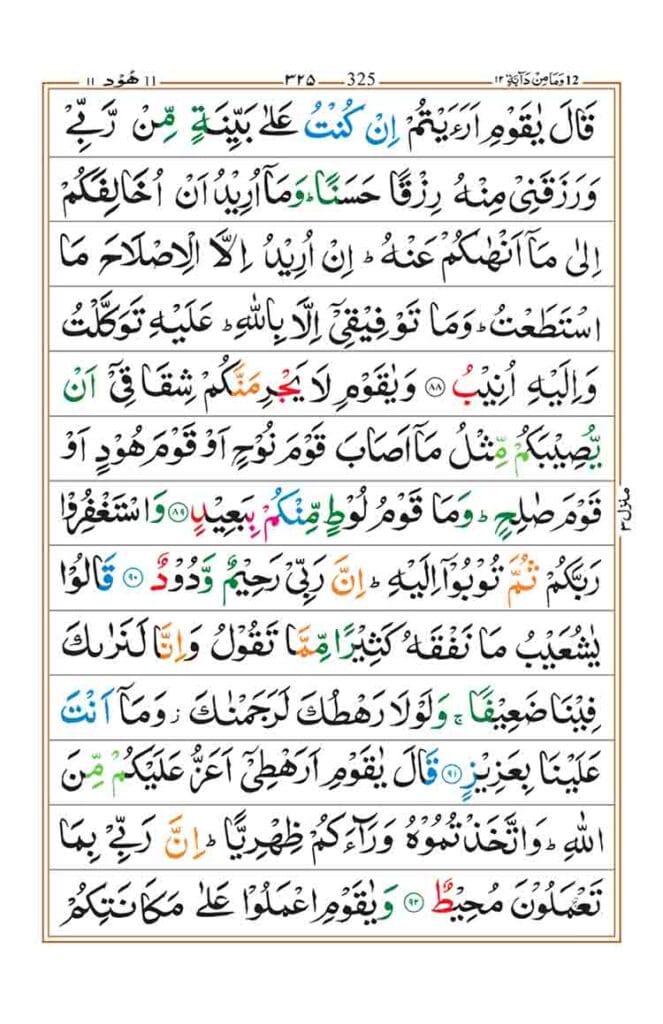 12 وَمَا مِنْ دَآبَّةٍ ١٢ 325 ٣٢٥ 11 هُوْد ١١
قَالَ يٰقَوْمِ اَرَءَيْتُمْ اِنْ كُنْتُ عَلٰى بَيِّنَةٍ مِّنْ رَّبِّىْ
وَرَزَقَنِىْ مِنْهُ رِزْقًا حَسَنًا ؕ وَمَاۤ اُرِيْدُ اَنْ اُخَالِفَكُمْ
اِلٰى مَاۤ اَنْهٰىكُمْ عَنْهُ ؕ اِنْ اُرِيْدُ اِلَّا الْاِصْلَاحَ مَا
اسْتَطَعْتُ ؕ وَمَا تَوْفِيْقِىْۤ اِلَّا بِاللّٰهِ ؕ عَلَيْهِ تَوَكَّلْتُ
وَاِلَيْهِ اُنِيْبُ ۝۸۸ وَيٰقَوْمِ لَا يَجْرِمَنَّكُمْ شِقَاقِىْۤ اَنْ
يُّصِيْبَكُمْ مِّثْلُ مَاۤ اَصَابَ قَوْمَ نُوْحٍ اَوْ قَوْمَ هُوْدٍ اَوْ
قَوْمَ صٰلِحٍ ؕ وَمَا قَوْمُ لُوْطٍ مِّنْكُمْ بِبَعِيْدٍ ۝۸۹ وَاسْتَغْفِرُوْا
رَبَّكُمْ ثُمَّ تُوْبُوْۤا اِلَيْهِ ؕ اِنَّ رَبِّىْ رَحِيْمٌ وَّدُوْدٌ ۝۹۰ قَالُوْا
يٰشُعَيْبُ مَا نَفْقَهُ كَثِيْرًا مِّمَّا تَقُوْلُ وَاِنَّا لَنَرٰىكَ
فِيْنَا ضَعِيْفًا ۚ وَلَوْلَا رَهْطُكَ لَرَجَمْنٰكَ ؗ وَمَاۤ اَنْتَ
عَلَيْنَا بِعَزِيْزٍ ۝۹۱ قَالَ يٰقَوْمِ اَرَهْطِىْۤ اَعَزُّ عَلَيْكُمْ مِّنَ
اللّٰهِ ؕ وَاتَّخَذْتُمُوْهُ وَرَآءَكُمْ ظِهْرِيًّا ؕ اِنَّ رَبِّىْ بِمَا
تَعْمَلُوْنَ مُحِيْطٌ ۝۹۲ وَيٰقَوْمِ اعْمَلُوْا عَلٰى مَكَانَتِكُمْ
منزل ٣